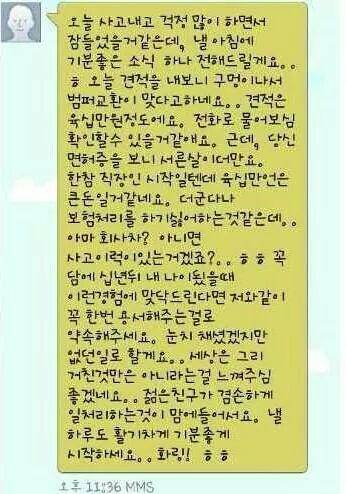 오늘 사고내고 걱정 많이 하면서
잠들었을거같은데, 낼 아침에
기분좋은 소식 하나 전해드릴게요..
ㅎ 오늘 견적을 내보니 구멍이나서
범퍼교환이 맞다고하네요.. 견적은
육십만원정도에요. 전화로 물어보심
확인할수 있을거같애요. 근데, 당신
면허증을 보니 서른살이더만요.
한참 직장인 시작일텐데 육십만언은
큰돈일거같네요. 더군다나
보험처리를 하기싫어하는것같은데..
아마 회사차? 아니면
사고이력이있는거겠죠?.. ㅎㅎ 꼭
담에 십년뒤 내 나이됬을때
이런경험에 맞닥드린다면 저와같이
꼭 한번 용서해주는걸로
약속해주세요. 눈치 채셨겠지만
없던일로 할게요.. 세상은 그리
거친것만은 아니라는걸 느껴주심
좋겠네요.. 젊은친구가 겸손하게
일처리하는것이 맘에들어서요. 낼
하루도 활기차게 기분좋게
시작하세요.. 화링! ㅎㅎ
오후 11:36 MMS